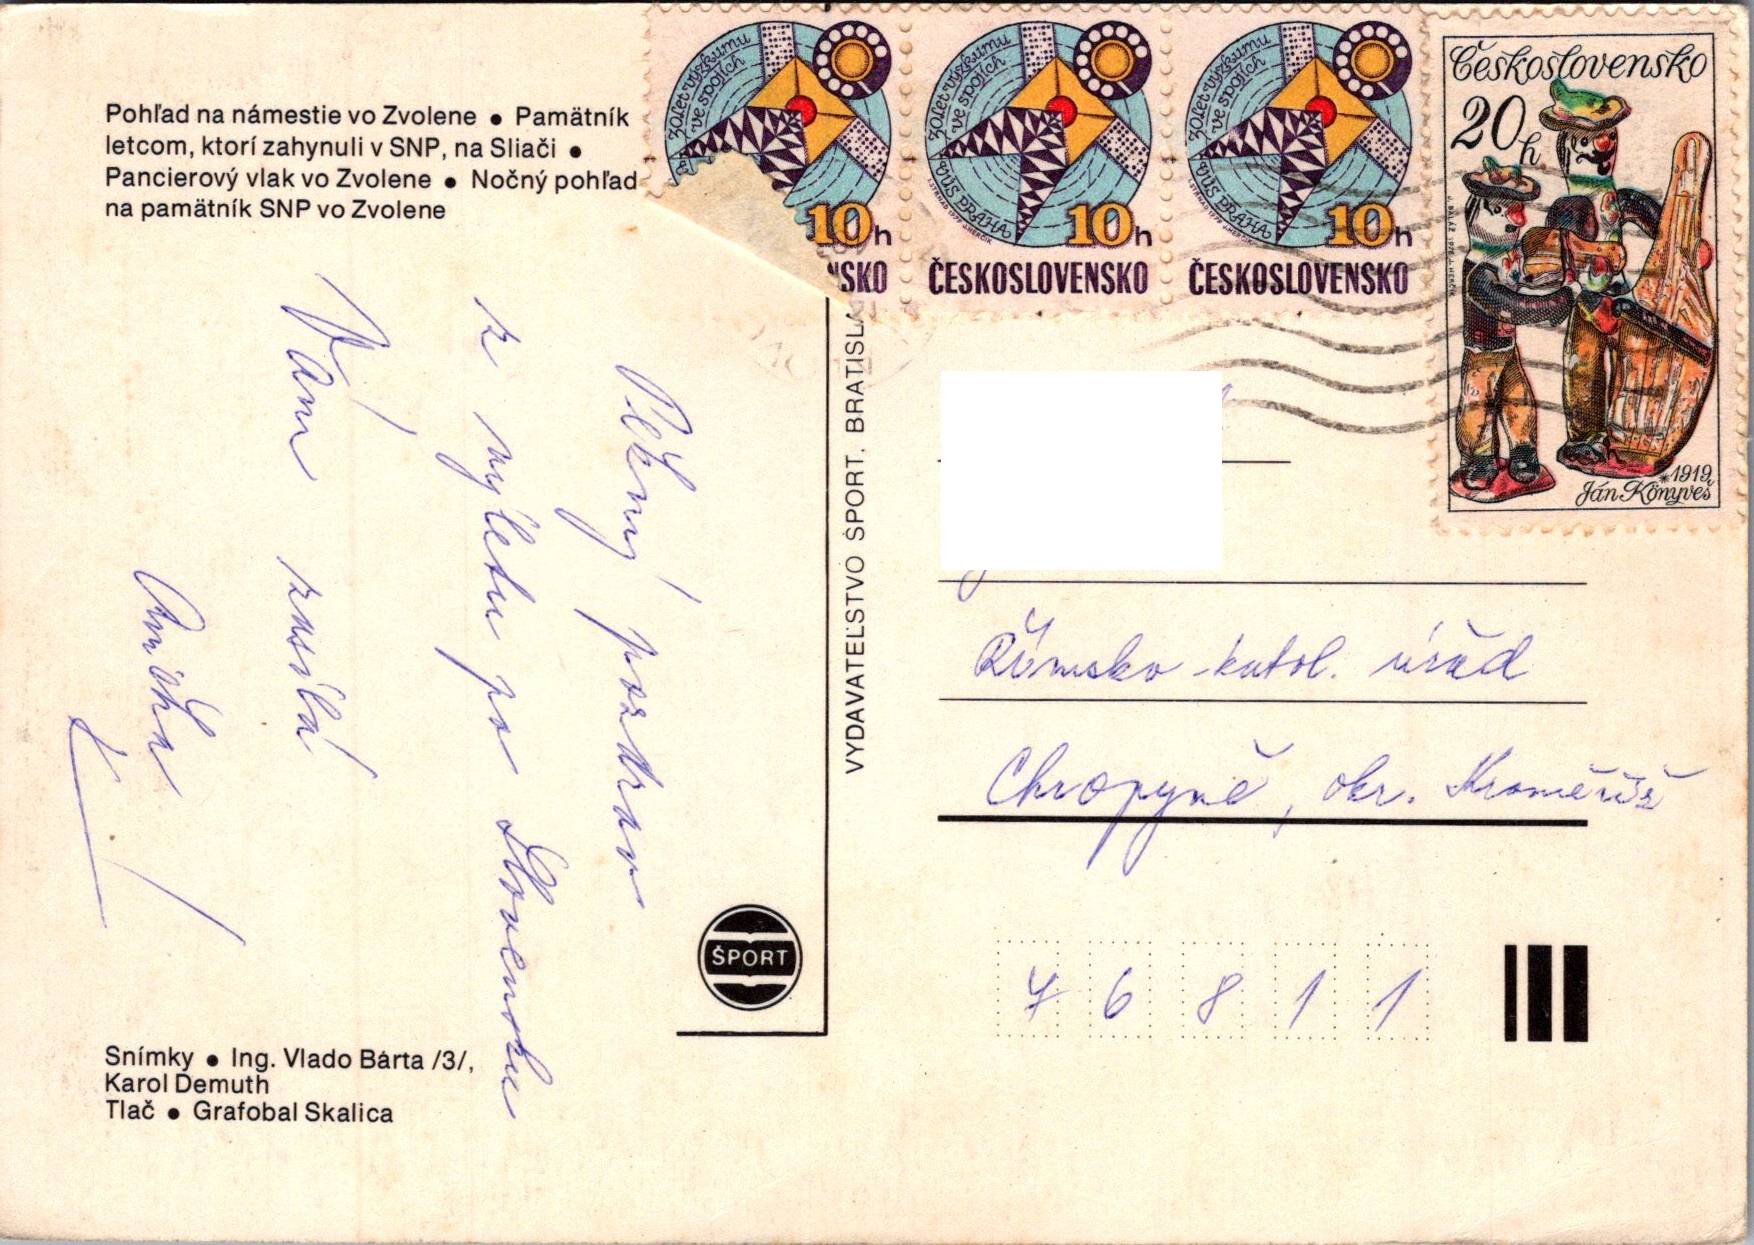 Pohľad na námestie vo Zvolene ● Pamätník
letcom, ktorí zahynuli v SNP, na Sliači ●
Pancierový vlak vo Zvolene ● Nočný pohľad
na pamätník SNP vo Zvolene
Pěkný pozdrav
z výletu po Slovensku
Vám zasílá
Anička
Snímky ● Ing. Vlado Bárta /3/,
Karol Demuth
Tlač ● Grafobal Skalica
ŠPORT
VYDAVATEĽSTVO ŠPORT, BRATISLA
30 let výzkumu
ve spojích
10h
NSKO
30 let výzkumu
ve spojích
VÚS PRAHA
I. STRNAD 1979 J. HERČÍK
10h
ČESKOSLOVENSKO
30 let výzkumu
ve spojích
VÚS PRAHA
I. STRNAD 1979 J. HERČÍK
10h
ČESKOSLOVENSKO
Československo
20h
*1919
Ján Könyveš
Římsko-katol. úřad
Chropyně, okr. Kroměříž
76811